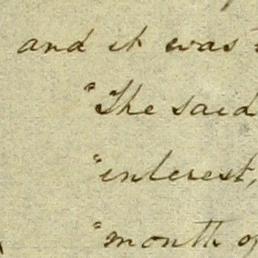 and it was
"The said
"interest,
"month of